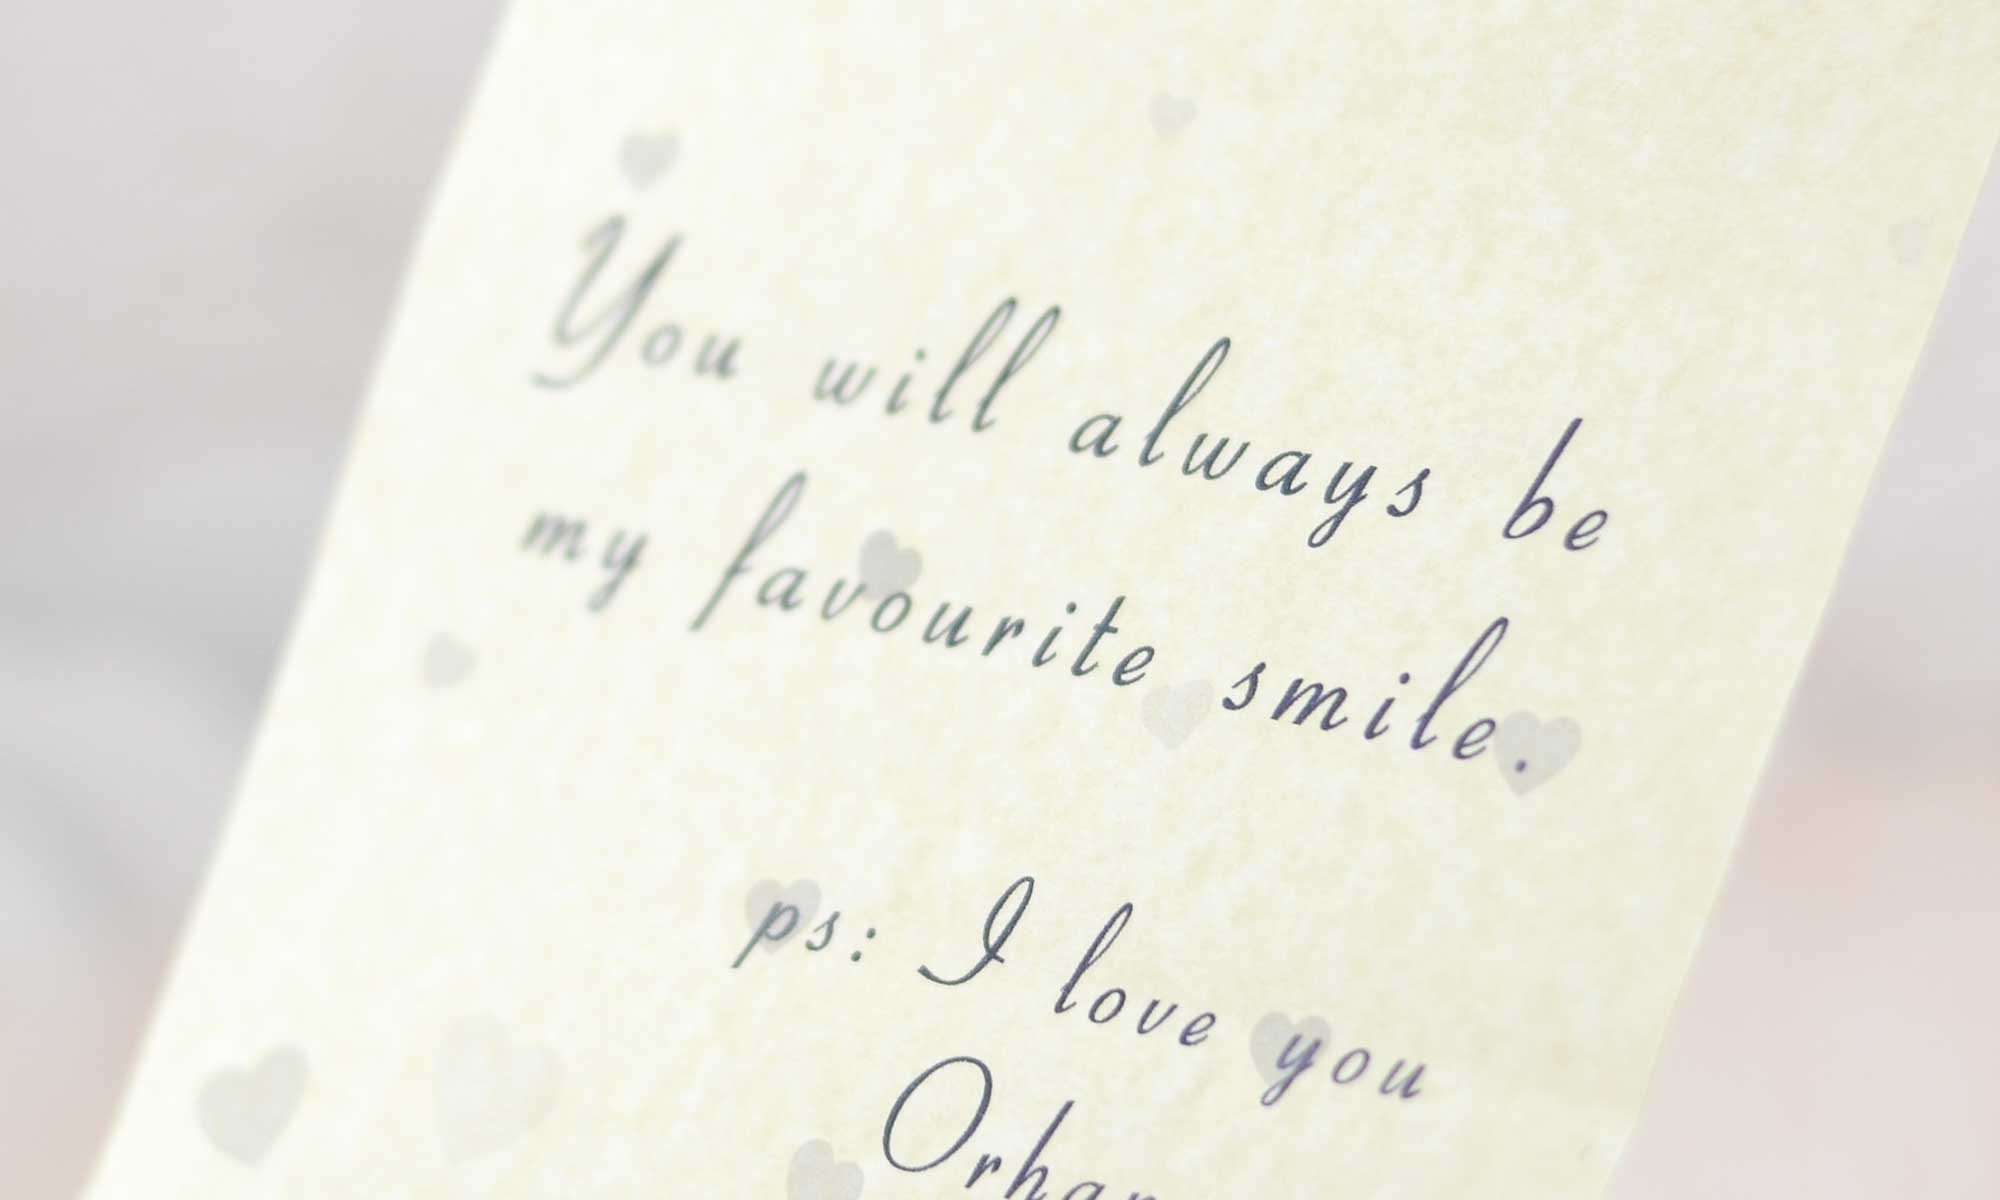 You will always be
my favourite smile.
ps: I love you
Orhan